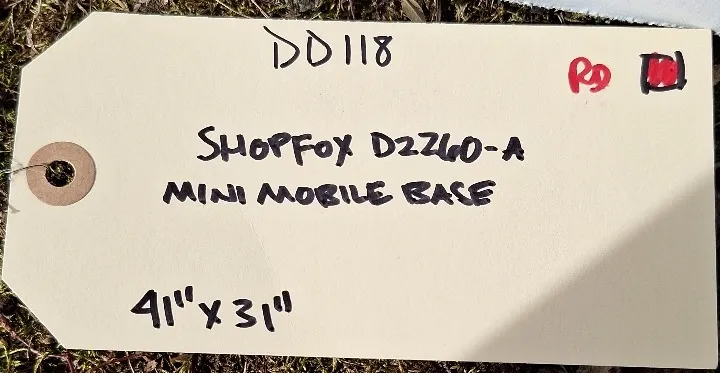 DD118
RD
SHOPFOX D2260-A
MINI MOBILE BASE
41" X 31"